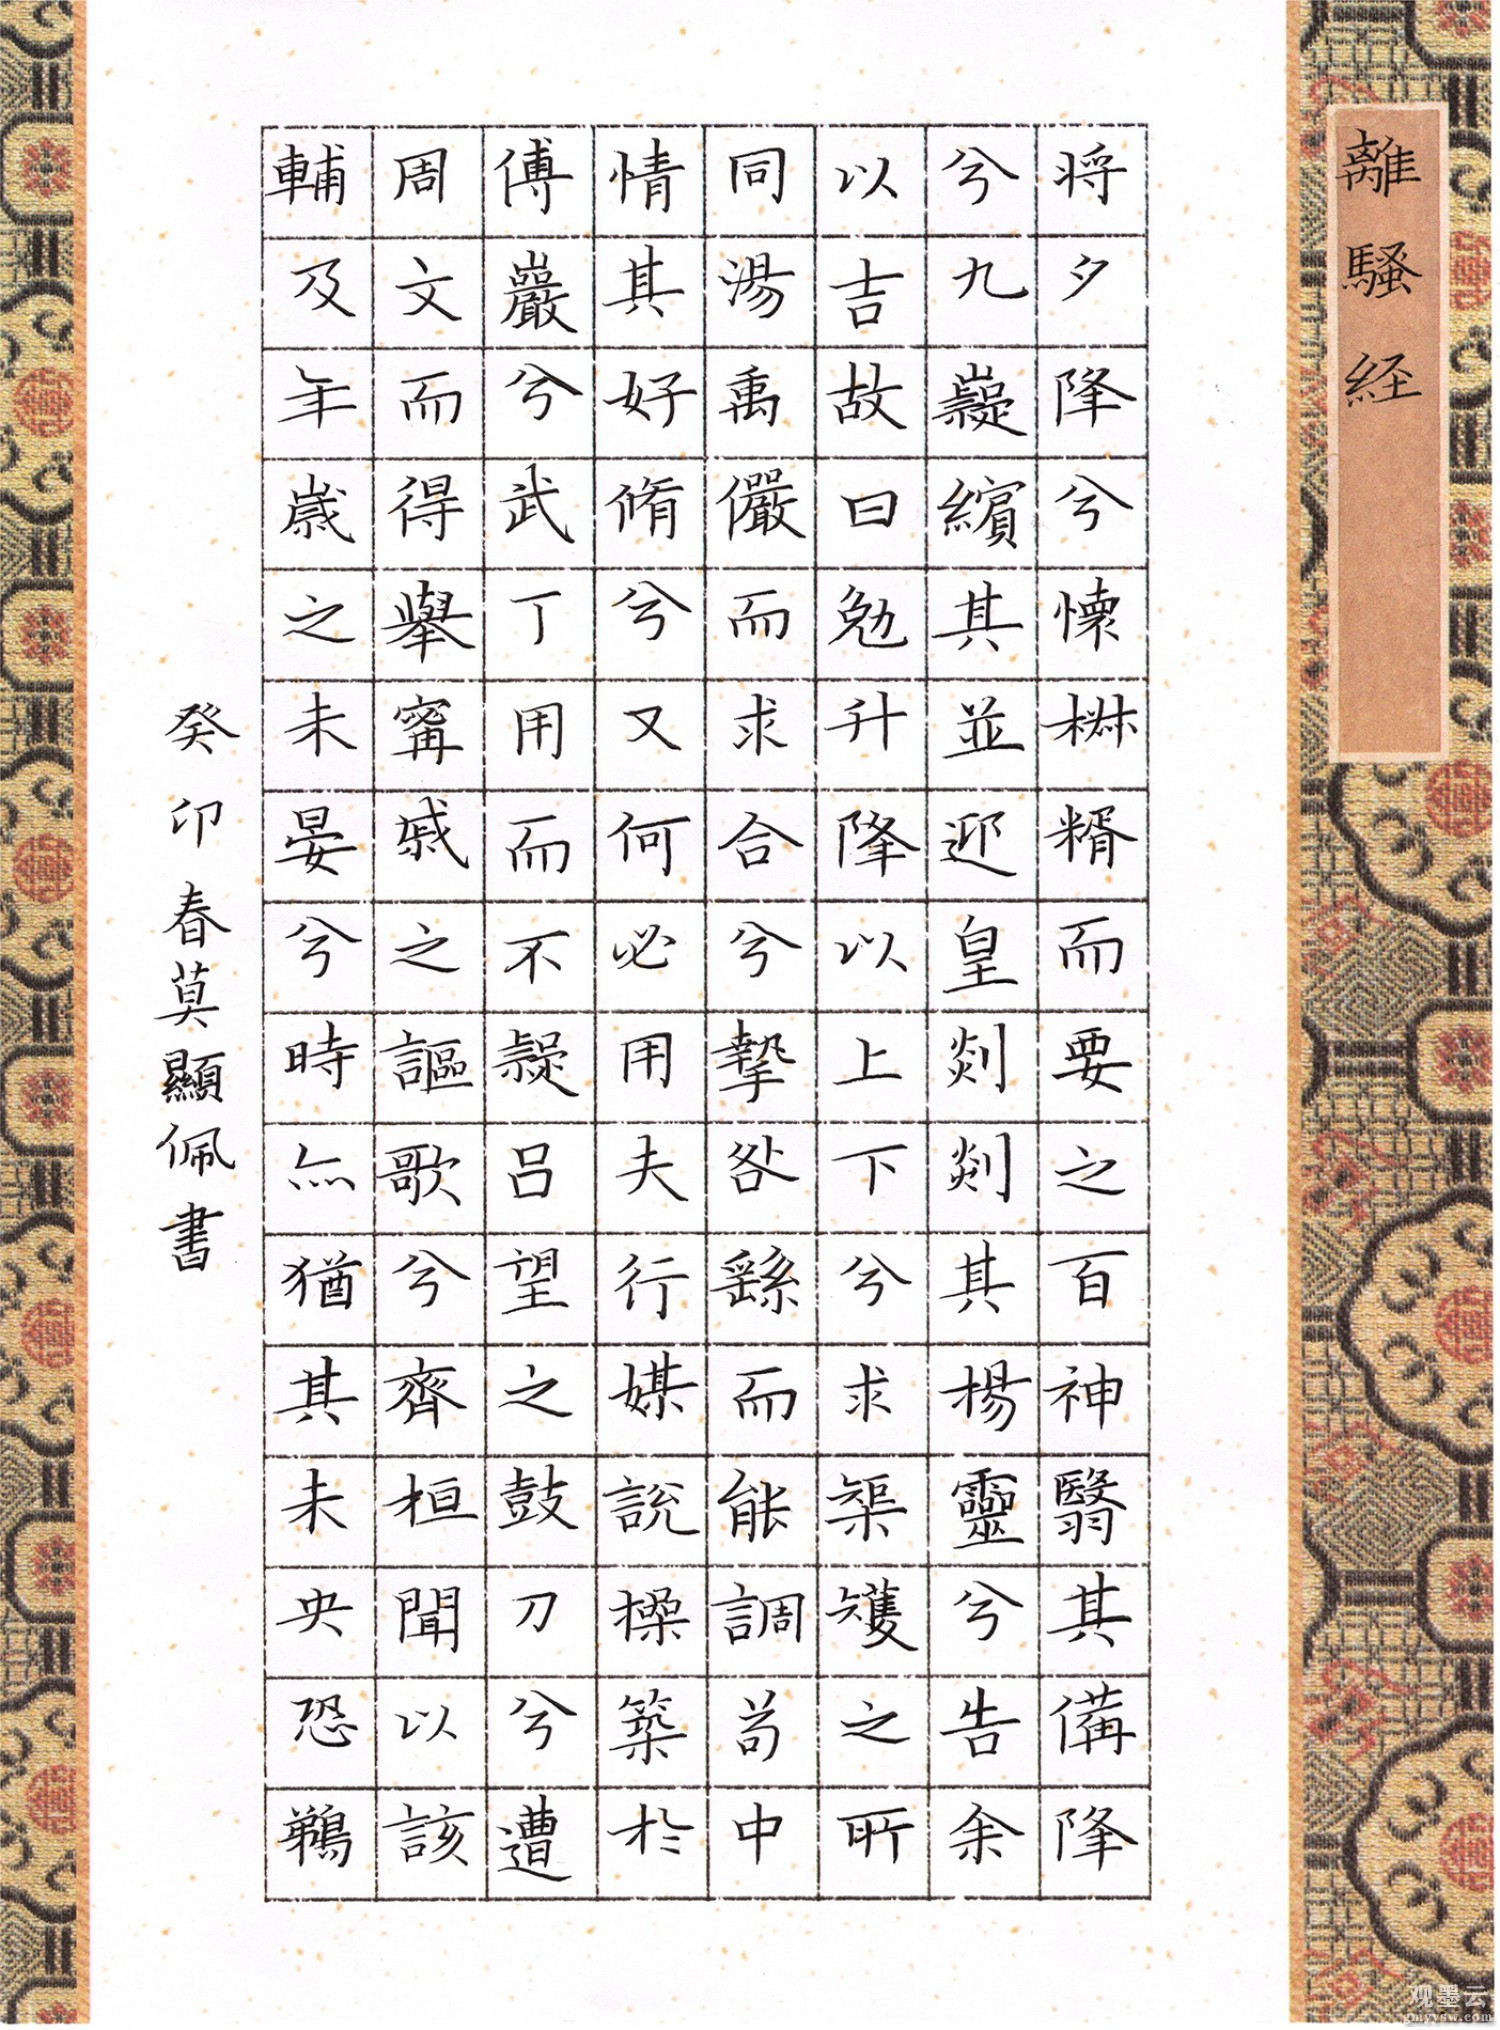 離騷経
将夕降兮懷椒糈而要之百神翳其備降
兮九嶷繽其並迎皇剡剡其楊靈兮告余
以吉故曰勉升降以上下兮求榘矱之所
同湯禹儼而求合兮摯咎繇而能調苟中
情其好脩兮又何必用夫行媒說操築於
傅巖兮武丁用而不疑呂望之鼓刀兮遭
周文而得舉甯戚之謳歌兮齊桓聞以該
輔及年歳之未晏兮時亦猶其未央恐鵜
癸卯春莫顯佩書
观墨云
gmyysw.com